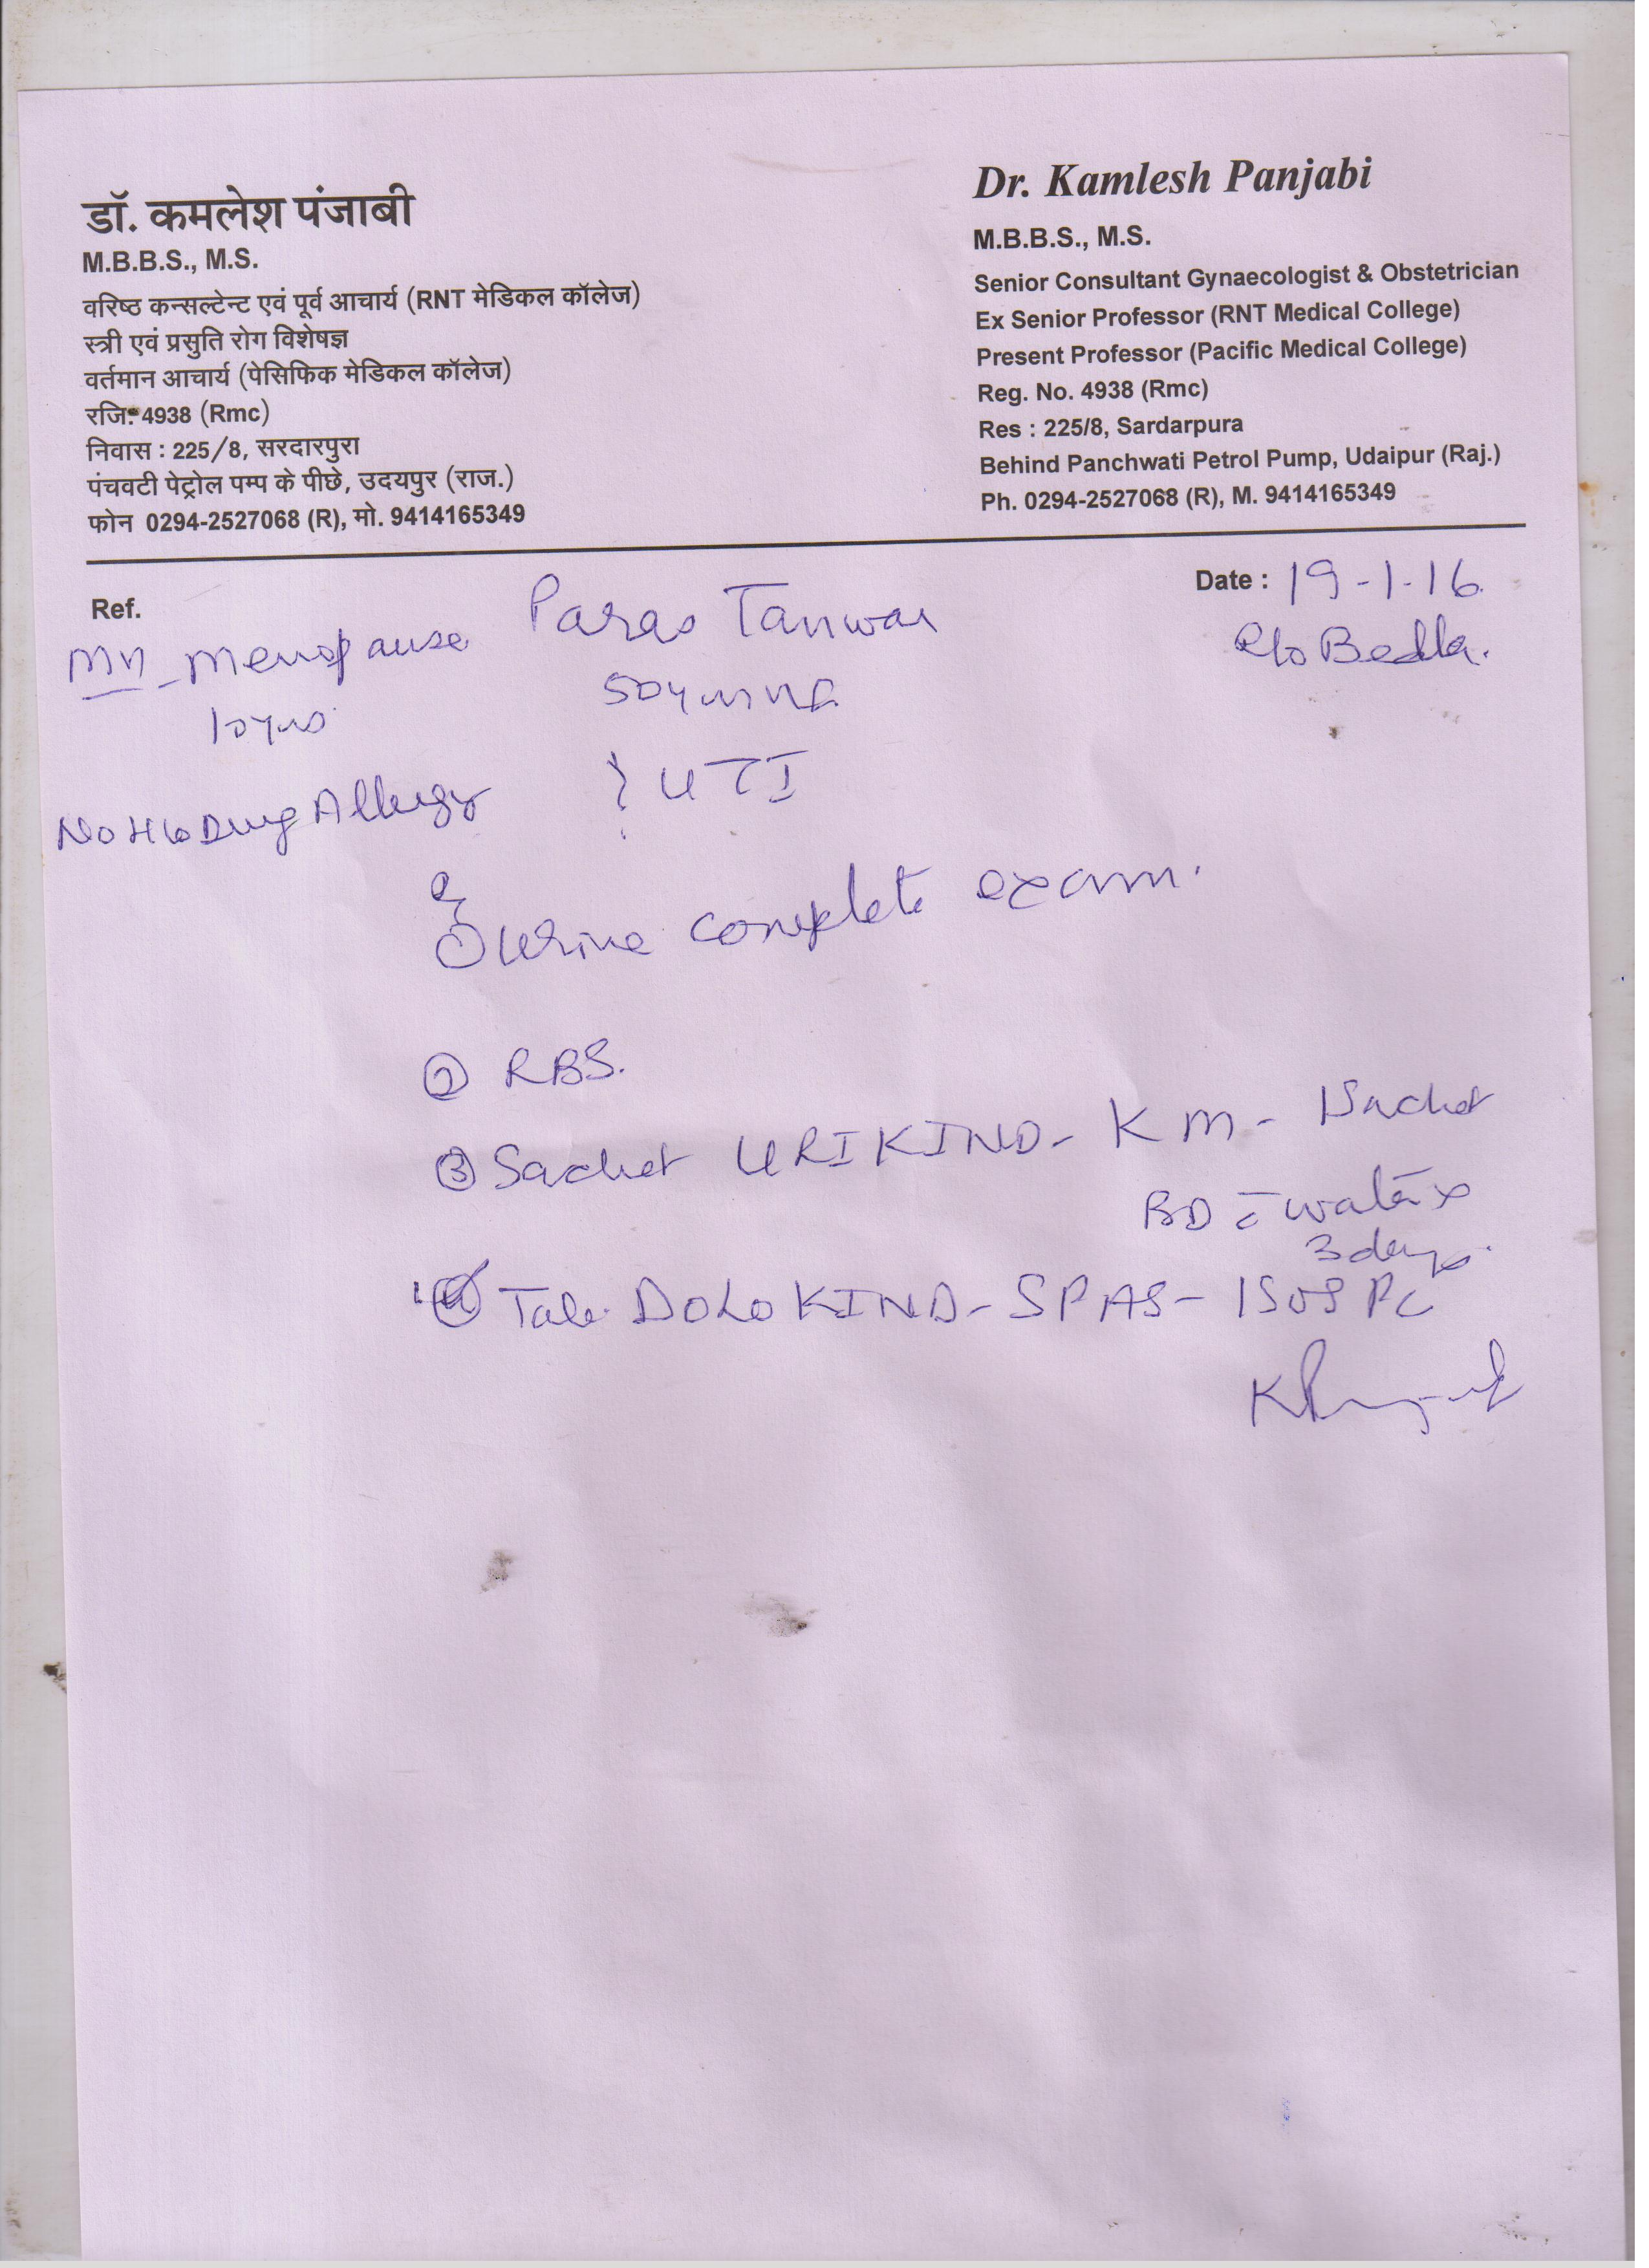 डॉ. कमलेश पंजाबी
M.B.B.S., M.S.
वरिष्ठ कन्सल्टेन्ट एवं पूर्व आचार्य (RNT मेडिकल कॉलेज)
स्त्री एवं प्रसुति रोग विशेषज्ञ
वर्तमान आचार्य (पेसिफिक मेडिकल कॉलेज)
रजि. 4938 (Rmc)
निवास : 225/8, सरदारपुरा
पंचवटी पेट्रोल पम्प के पीछे, उदयपुर (राज.)
फोन 0294-2527068 (R), मो. 9414165349
Dr. Kamlesh Panjabi
M.B.B.S., M.S.
Senior Consultant Gynaecologist & Obstetrician
Ex Senior Professor (RNT Medical College)
Present Professor (Pacific Medical College)
Reg. No. 4938 (Rmc)
Res : 225/8, Sardarpura
Behind Panchwati Petrol Pump, Udaipur (Raj.)
Ph. 0294-2527068 (R), M. 9414165349
Ref.
Date : 19-1-16
Paras Tanwar
R/o Bedla.
Menopause
10 yrs
50 yrs
No H/o Drug Allergy
? UTI
① Urine complete exam.
② RBS.
③ Sachet URIKIND-KM- 1 Sachet
BD c̄ water x
3 days.
④ Tab. DOLOKIND-SPAS- 1 SOS PC